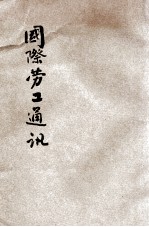 國際劳工通訊